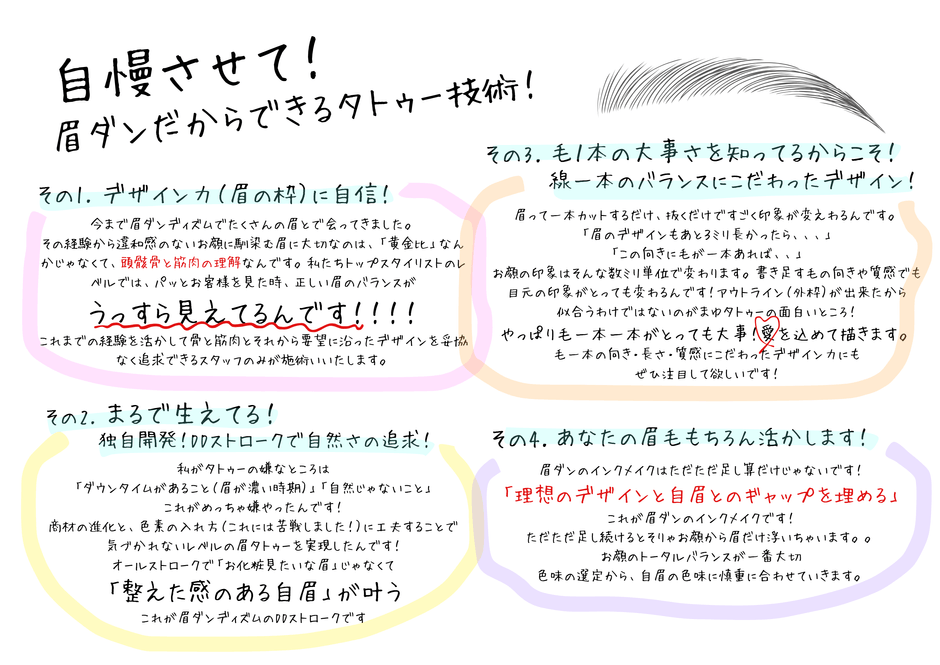 自慢させて!
眉ダンだからできるタトゥー技術!
その1. デザイン力(眉の枠)に自信!
今まで眉ダンディズムでたくさんの眉とで会ってきました。
その経験から違和感のないお顔に馴染む眉に大切なのは、「黄金比」なん
かじゃなくて、頭骸骨と筋肉の理解なんです。私たちトップスタイリストのレ
ベルでは、パッとお客様を見た時、正しい眉のバランスが
うっすら見えてるんです!!!!
これまでの経験を活かして骨と筋肉とそれから要望に沿ったデザインを妥協
なく追求できるスタッフのみが施術いいたします。
その2. まるで生えてる!
独自開発!DDストロークで自然さの追求!
私がタトゥーの嫌なところは
「ダウンタイムがあること(眉が濃い時期)」「自然じゃないこと」
これがめっちゃ嫌やったんです!
商材の進化と、色素の入れ方(これには苦戦しました!)に工夫することで
気づかれないレベルの眉タトゥーを実現したんです!
オールストロークで「お化粧見たいな眉」じゃなくて
「整えた感のある自眉」が叶う
これが眉ダンディズムのDDストロークです
その3. 毛1本の大事さを知ってるからこそ!
線一本のバランスにこだわったデザイン!
眉って一本カットするだけ、抜くだけですごく印象が変えわるんです。
「眉のデザインもあと3ミリ長かったら、、、」
「この向きに毛が一本あれば、、」
お顔の印象はそんな数ミリ単位で変わります。書き足すもの向きや質感でも
目元の印象がとっても変わるんです!アウトライン(外枠)が出来たから
似合うわけではないのがまゆタトゥーの面白いところ!
やっぱり毛一本一本がとっても大事!愛を込めて描きます。
毛一本の向き・長さ・質感にこだわったデザイン力にも
ぜひ注目して欲しいです!
その4. あなたの眉毛もちろん活かします!
眉ダンのインクメイクはただただ足し算だけじゃないです!
「理想のデザインと自眉とのギャップを埋める」
これが眉ダンのインクメイクです!
ただただ足し続けるとそりゃお顔から眉だけ浮いちゃいます。。
お顔のトータルバランスが一番大切
色味の選定から、自眉の色味に慎重に合わせていきます。